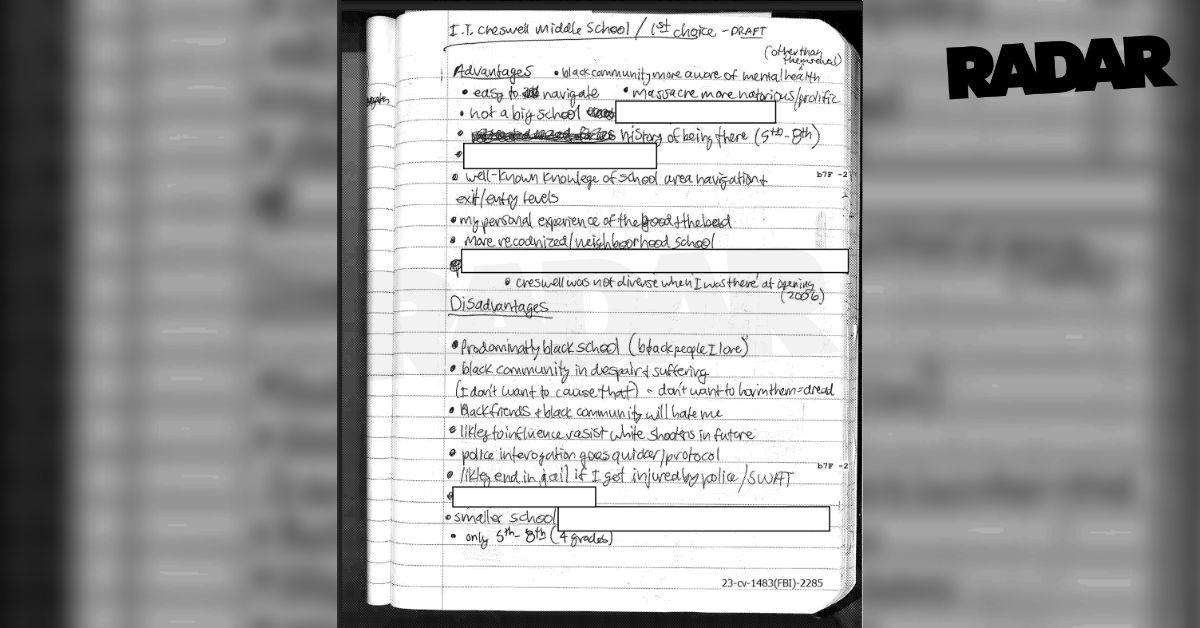 I.T. Creswell Middle School / 1st choice - DRAFT
RADAR
(other than themselves)
Advantages • black community more aware of mental health
• easy to navigate • massacre more notorious/prolific
• not a big school
• history of being there (5th-8th)
• well-known knowlege of school area navigation +
exit/entry levels
b7F -2
• my personal experience of the good + the bad
• more recodnized/neighboorhood school
• creswell was not diverse when I was there at opening
(2006)
Disadvantages
• Prodominatly black school (black people I love)
• black community in despair + suffering
(I don't want to cause that) - don't want to harm them = dread
• Black friends + black community will hate me
• likley to influence rasist white shooters in future
• police interogation goes quicker/protocol
b7F -2
• likley end in jail if I get injured by police/SWAT
• smaller school
• only 5th-8th (4 grades)
23-cv-1483(FBI)-2285